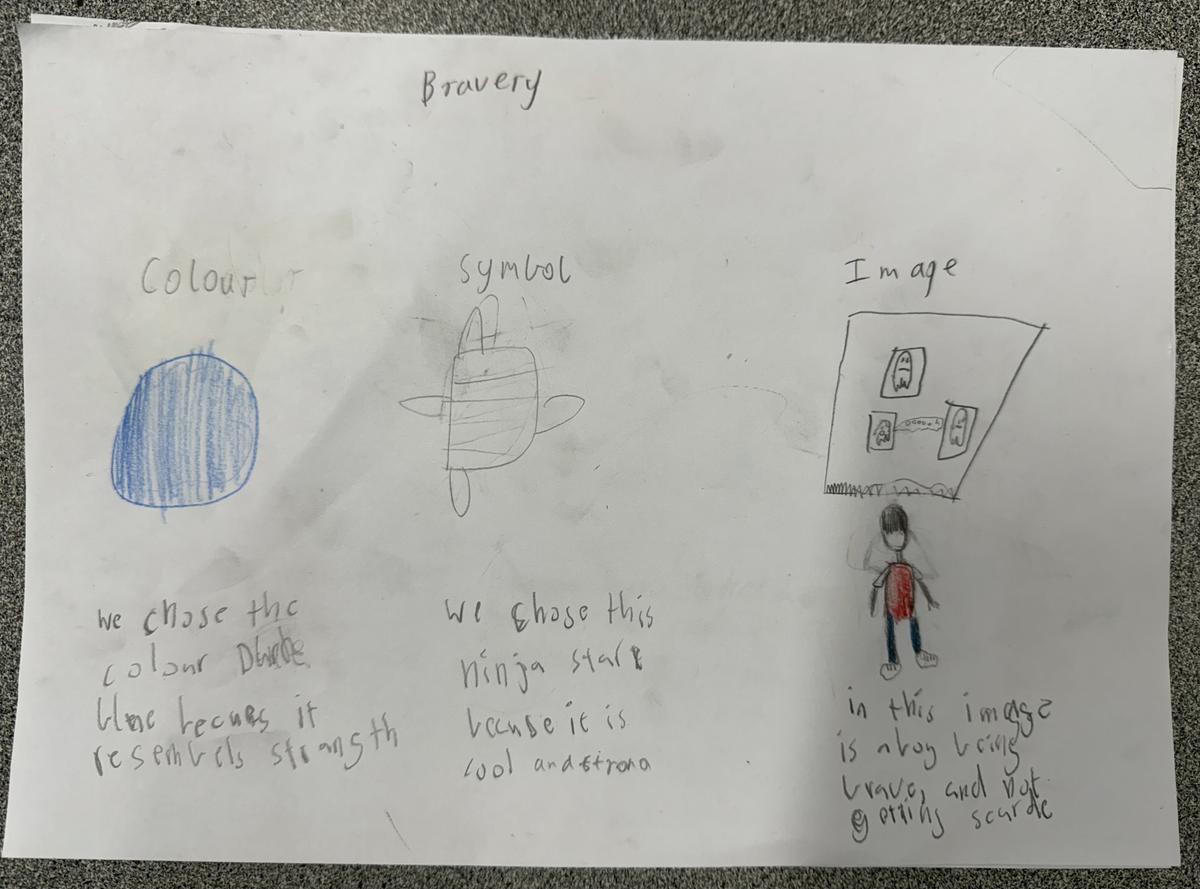 Bravery
Colour
Symbol
Image
oooooh
we chose the
colour
blue becuas it
resembels strangth
we chose this
ninja star
becuse it is
cool and strong
in this image
is a boy being
brave, and not
getting scarde